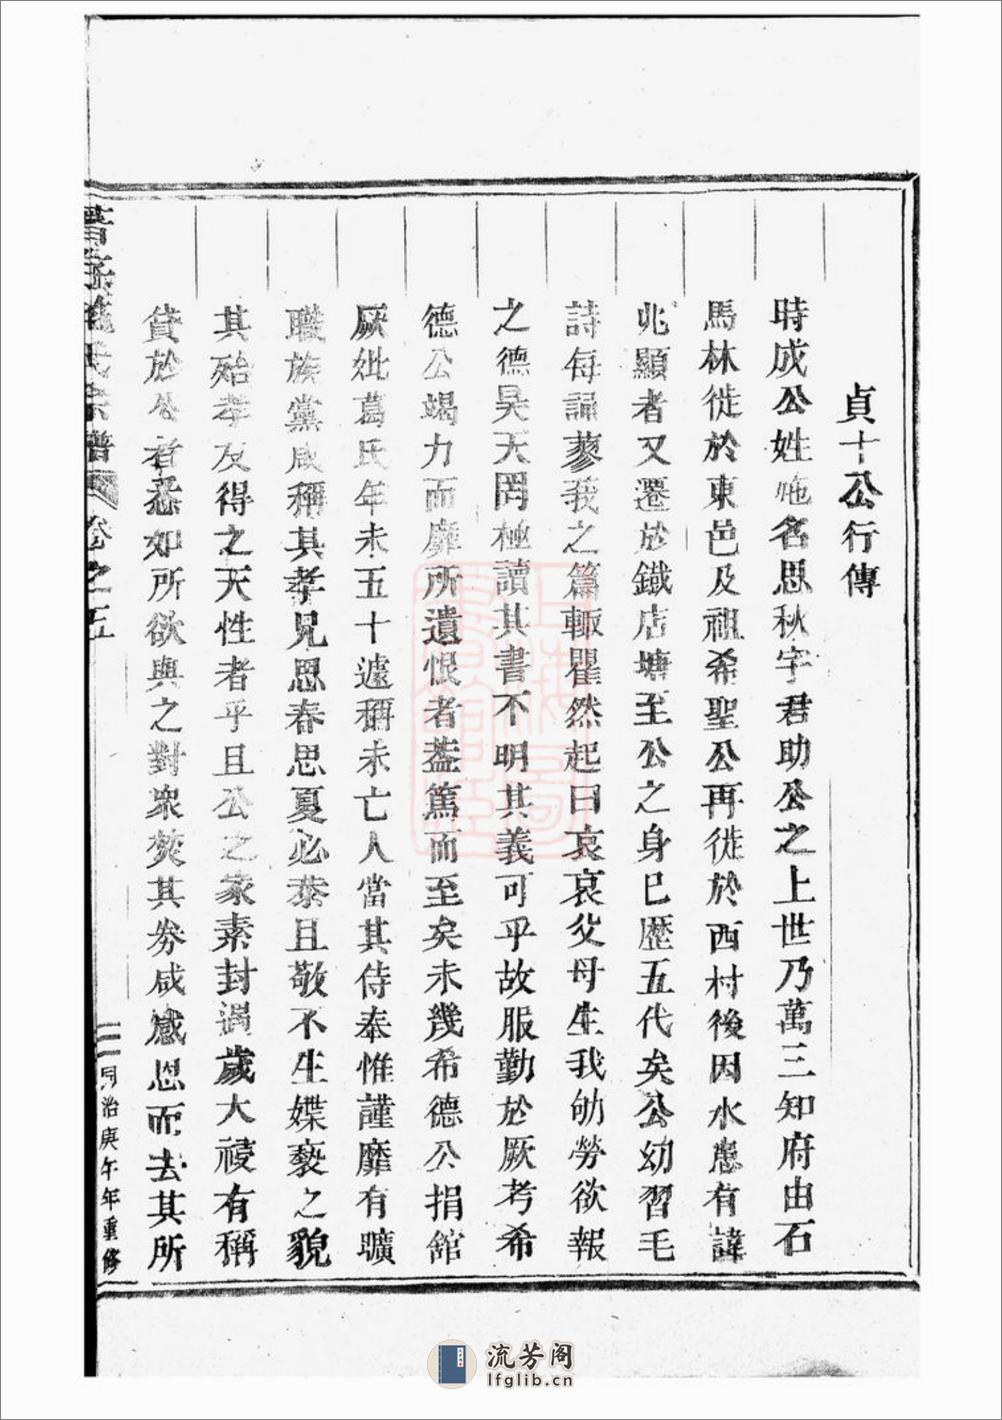 貞十公行傳
時成公姓施名思秋字君助公之上世乃萬三知府由石
馬林徙於東邑及祖希聖公再徙於西村後因水患有諱
兆顯者又遷於鐵店塘至公之身已歷五代矣公幼習毛
詩每誦蓼莪之篇輙瞿然起曰哀哀父母生我劬勞欲報
之德昊天罔極讀其書不明其義可乎故服勤於厥考希
德公竭力而靡所遺恨者葢篤而至矣未幾希德公捐舘
厥妣葛氏年未五十遽稱未亡人當其侍奉惟謹靡有曠
職族黨咸稱其孝兄思春思夏必恭且敬不生媟褻之貌
其殆孝友得之天性者乎且公之家素封遇歲大祲有稱
貸於公者悉如所欲與之對衆焚其券咸感恩而去其所
施氏宗譜 卷之五
二 同治庚午年重修
流芳阁
lfglib.cn